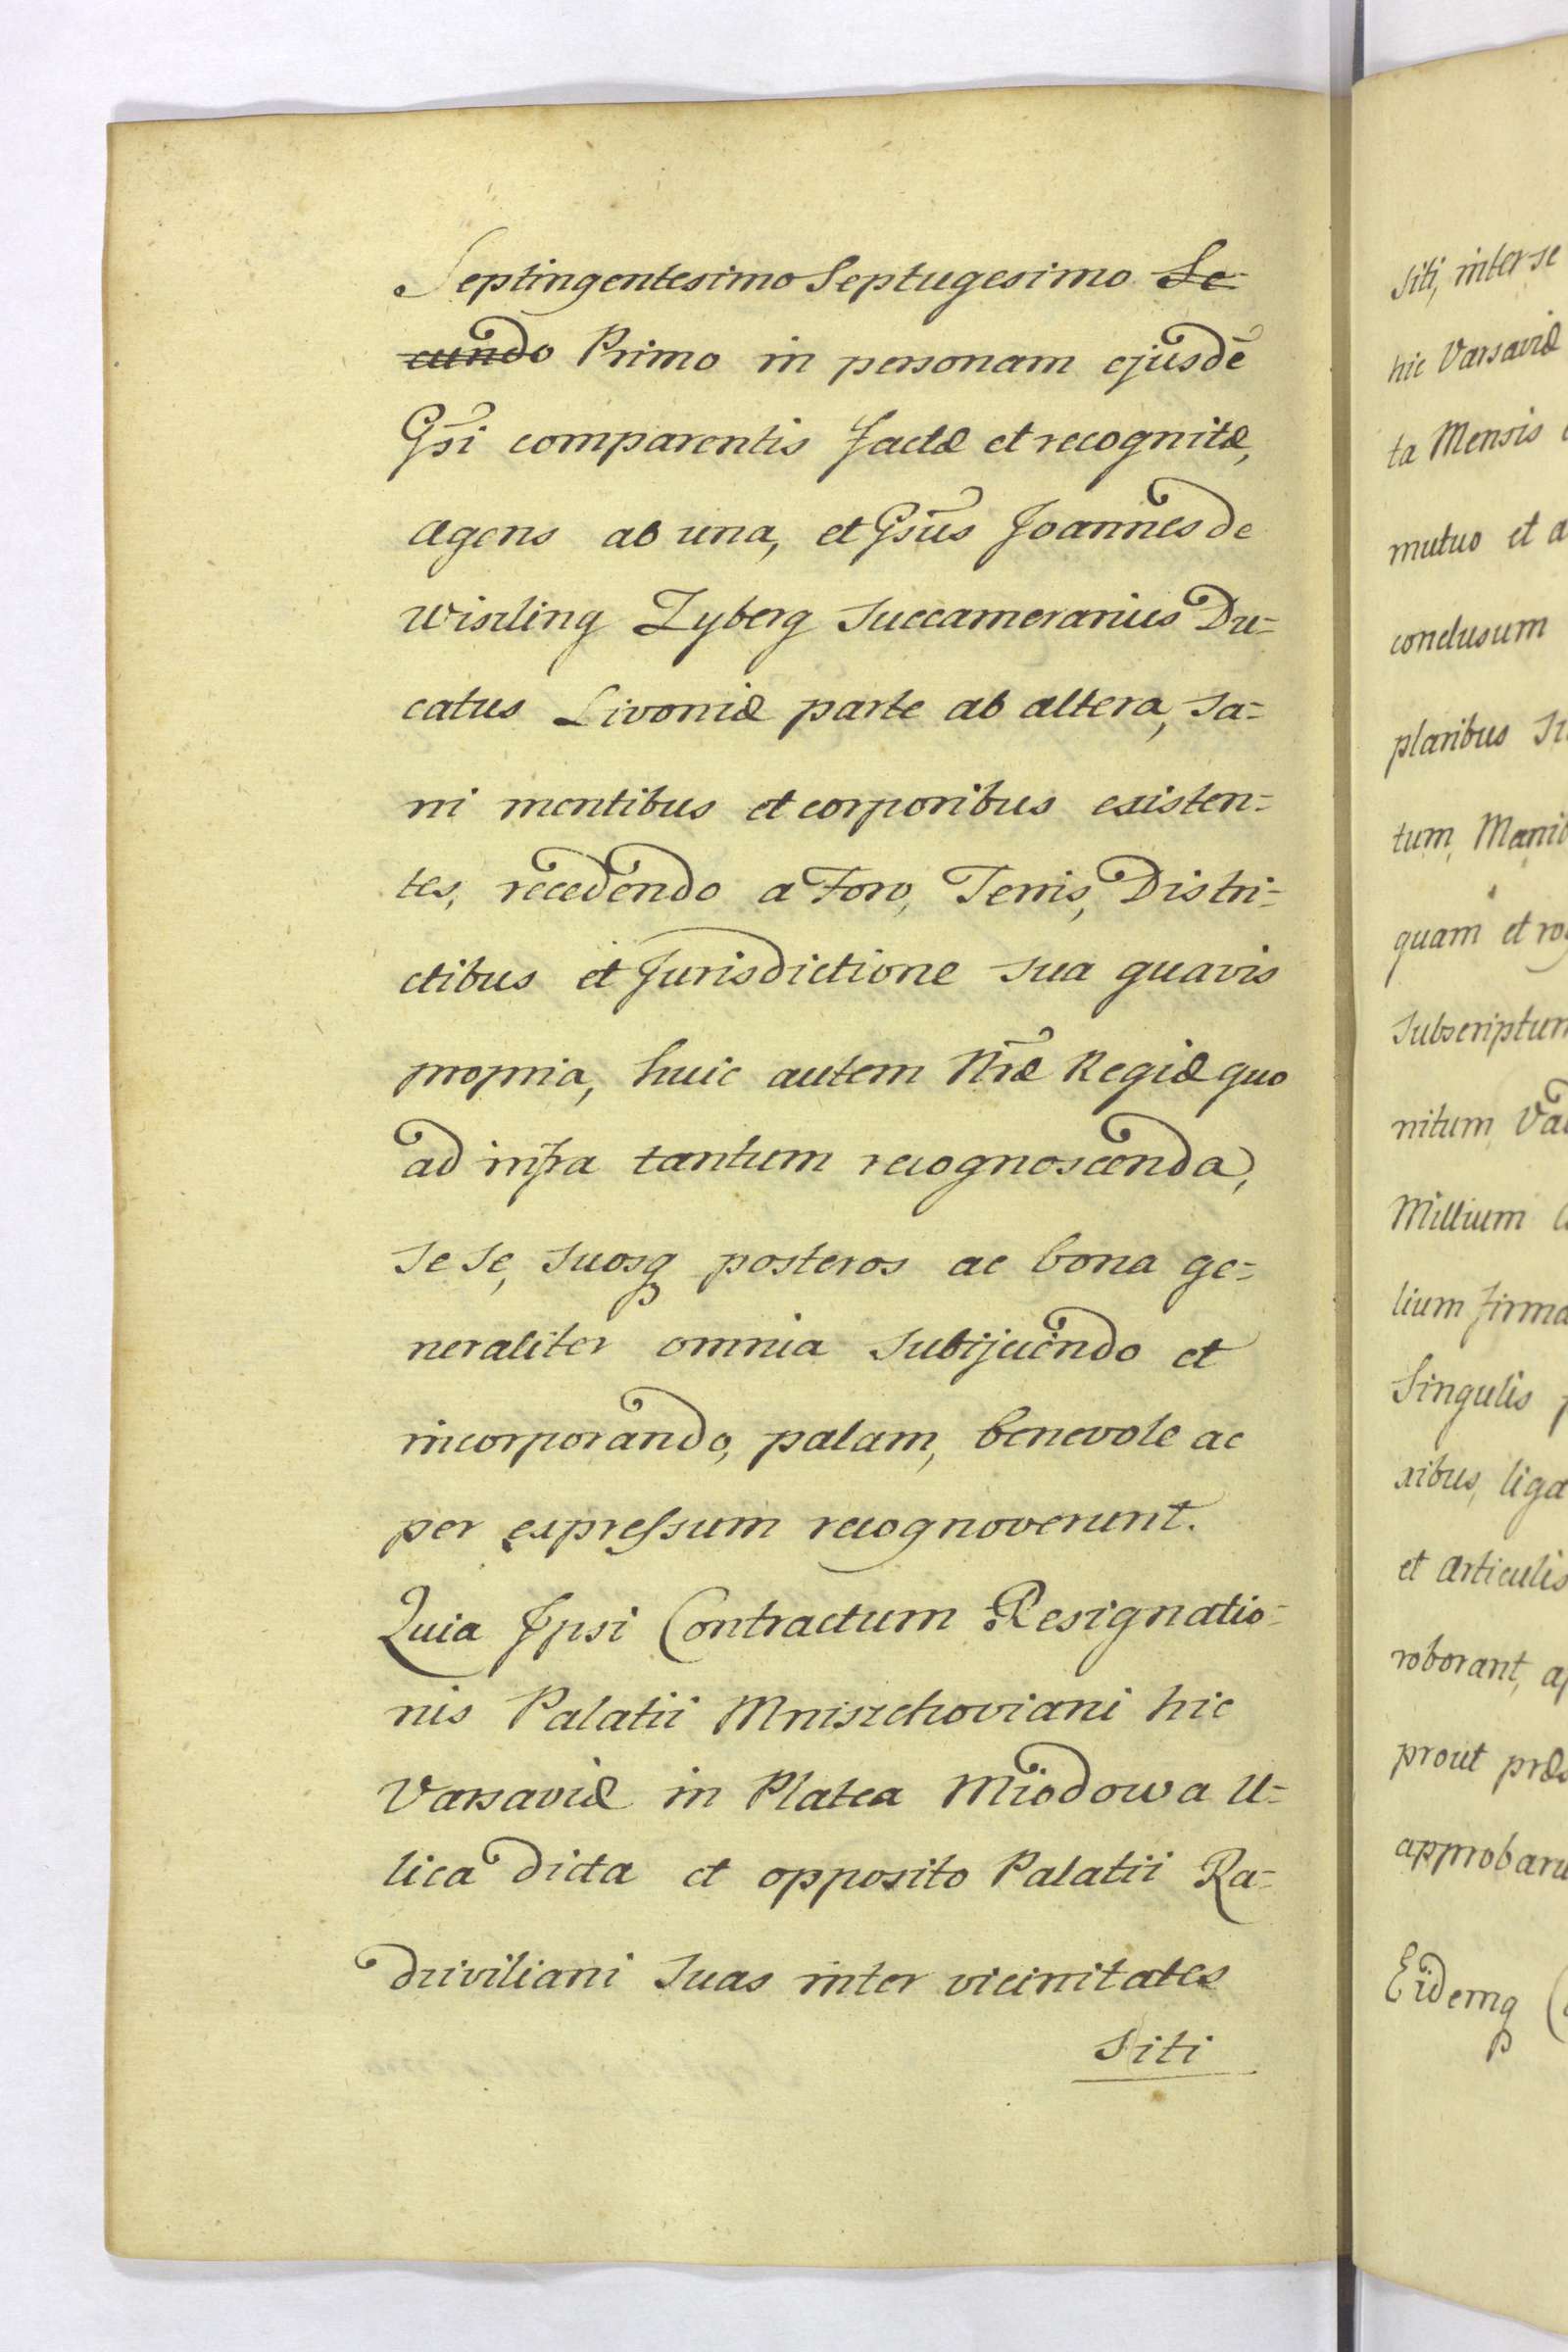 Septingentesimo Septugesimo Se-
cundo Primo in personam ejusdē
Gsi comparentis factæ et recognitæ,
agens ab una, et Gsus Joannes de
Wiszling Zyberg Succamerarius Du=
catus Livoniæ parte ab altera, sa=
ni mentibus et corporibus existen=
tes, recedendo a Foro, Terris, Distri=
ctibus et Jurisdictione sua quavis
propria, huic autem Nræ Regiæ quo
ad infra tantum recognoscenda,
se se, suosq posteros ac bona ge=
neraliter omnia subijciendo et
incorporando, palam, benevole ac
per expressum recognoverunt.
Quia Ipsi Contractum Resignatio=
nis Palatii Mniszchoviani hic
Varsaviæ in Platea Miodowa U=
lica dicta et opposito Palatii Ra=
dziviliani suas inter vicinitates
Siti
siti, inter se
hic Varsaviæ
ta Mensis
mutuo et a
conclusum
plaribus
tum, Manib
quam et
Subscriptum
nitum,
Millium
lium firma
Singulis
xibus, liga
et articulis
roborant, a
prout præ
approbaru
Eidemq